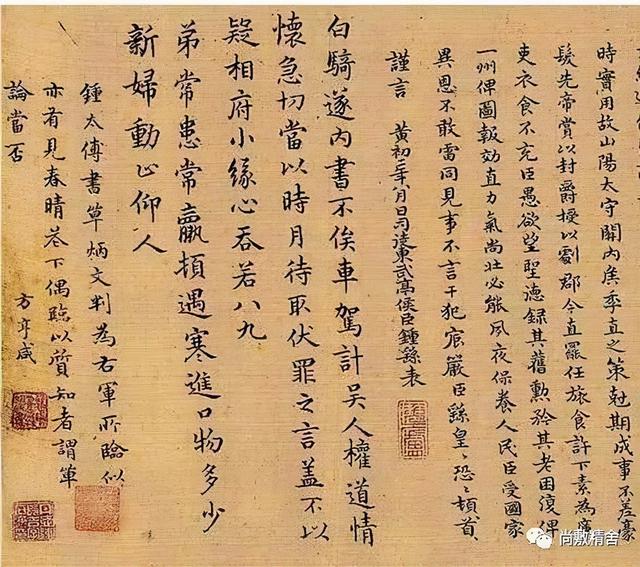 時實用故山陽太守關內侯季直之策尅期成事不差豪
髮先帝賞以封爵授以劇郡今直罷任旅食許下素為廉
吏衣食不充臣愚欲望聖德錄其舊勳矜其老困復俾
一州俾圖報効直力氣尚壯必能夙夜保養人民臣受國家
異恩不敢雷同見事不言干犯宸嚴臣繇皇〻恐〻頓首〻
謹言 黃初二年八月日司徒東武亭侯臣鍾繇表
白騎遂內書不俟車駕計吳人權道情
懷急切當以時月待取伏罪之言蓋不以
疑相府小緣心吞若八九
弟常患常羸頓遇寒進口物多少
新婦動止仰人
鍾太傅書草炳文判為右軍所臨似
亦有見春晴花下偶臨以質知者謂
論當否
方亨咸
尚敷精舍